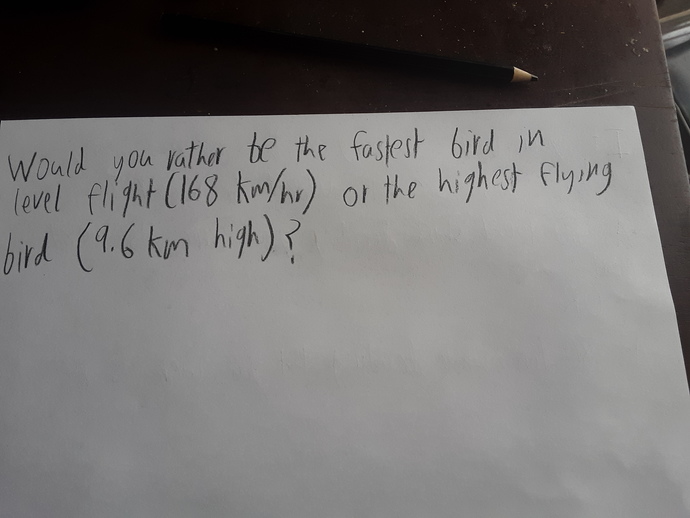 Would you rather be the fastest bird in
level flight (168 km/hr) or the highest flying
bird (9.6 km high)?